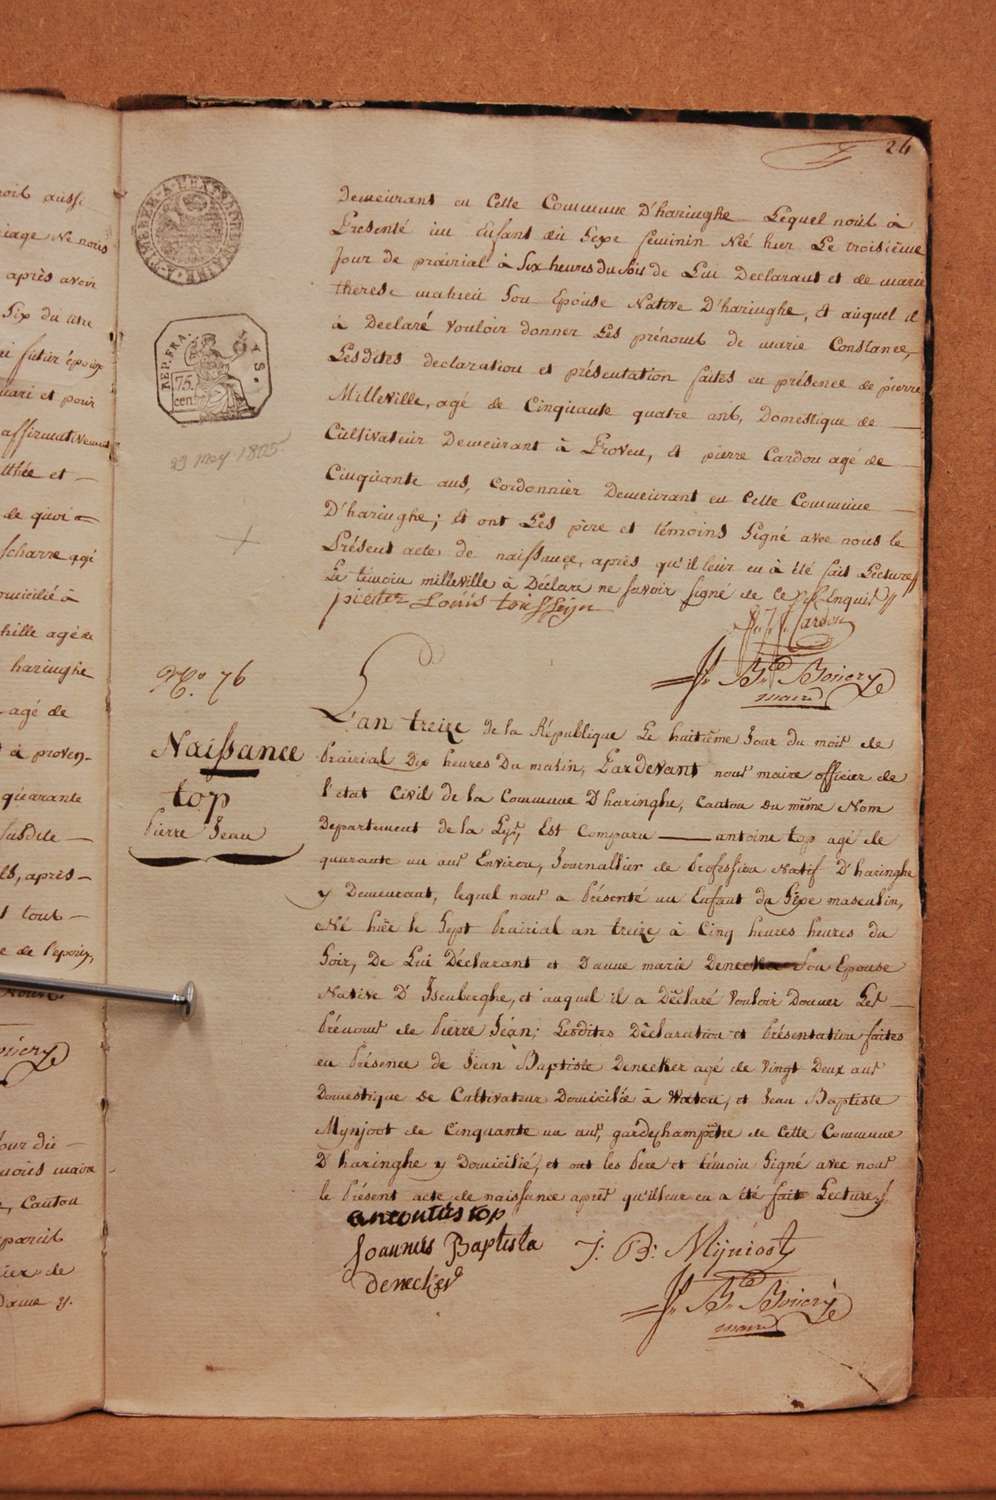 24
demeurant en Cette Commune D'haringhe Lequel nous à
Presenté un Enfant du Sexe feminin Née hier Le troisième
Jour de prairial à Six heures du Soir de Lui Declarant et de marie
therese mahieu Son Epouse Native D'haringhe, et auquel il
à Declaré vouloir donner Les prénoms de marie Constance,
Lesdites declaration et présentation faites en présence de pierre
Milleville, agé de Cinquante quatre ans, Domestique de
Cultivateur Demeurant à Proven, et pierre Cardon agé de
Cinquante ans, Cordonnier Demeurant en Cette Commune
D'haringhe; et ont Les père et témoins Signé avec nous le
Présent acte de naissance, après qu'il leur en à été fait Lecture
Le témoin milleville à Déclare ne Savoir Signé de ce Enquis
pieter Louis
Cardon
J. Bte Boiery
maire
REP. FRA. LYS.
75.
cent.
23 mey 1805
No. 76
Naissance
top
Pierre Jean
L'an treize de la République Le huitième Jour du mois de
Prairial Dix heures Du matin, Pardevant nous maire officier de
l'état Civil de la Commune D'haringhe, Canton Du même Nom
Departement de la Lys, Est Comparu antoine top agé de
quarante un ans Environ, Journallier de Profession Natif D'haringhe
y Demeurant, lequel nous a Présenté un Enfant du Sexe masculin,
Né hier le Sept Prairial an treize à Cinq heures heures du
Soir, De Lui Déclarant et Danne marie Denecker Son Epouse
Native D'Isenberghe, et auquel il a Déclaré Vouloir Donner Les
Prénoms de Pierre Jean; Lesdites Déclaration et Présentation faites
en Présence de Jean Baptiste Denecker agé de Vingt Deux ans
Domestique De Cultivateur Domicilié à Watou, et Jean Baptiste
Mynjoot de Cinquante un ans, gardechampêtre de Cette Commune
D'haringhe y Domicilié, et ont les Pere et témoin Signé avec nous
le Présent acte de naissance après qu'il leur en a été fait Lecture
antonius top
Joannes Baptista
denecker
J: B: Mijnioot
J. Bte Boiery
maire